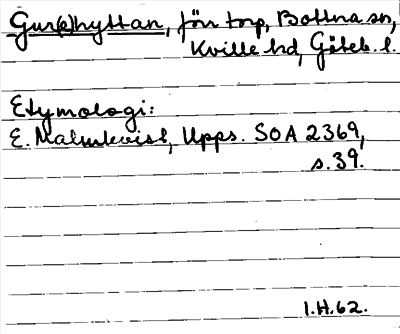 Gur(k)hyttan, förr torp, Bottna sn,
Kville hd, Göteb. l.
Etymologi:
E. Malmkvist, Upps. SOA 2369,
s. 39.
I.H.62.